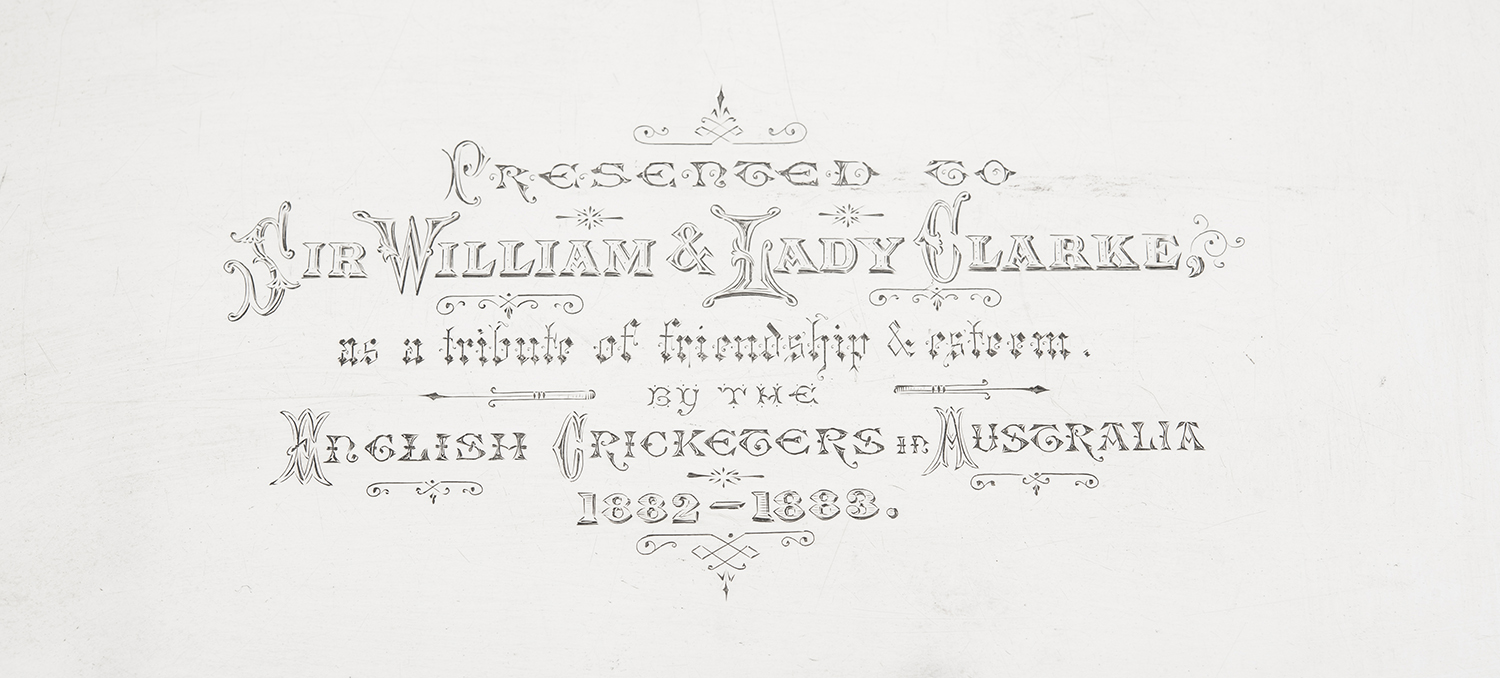 Presented to
Sir William & Lady Clarke,
as a tribute of friendship & esteem.
BY THE
English Cricketers in Australia
1882-1883.